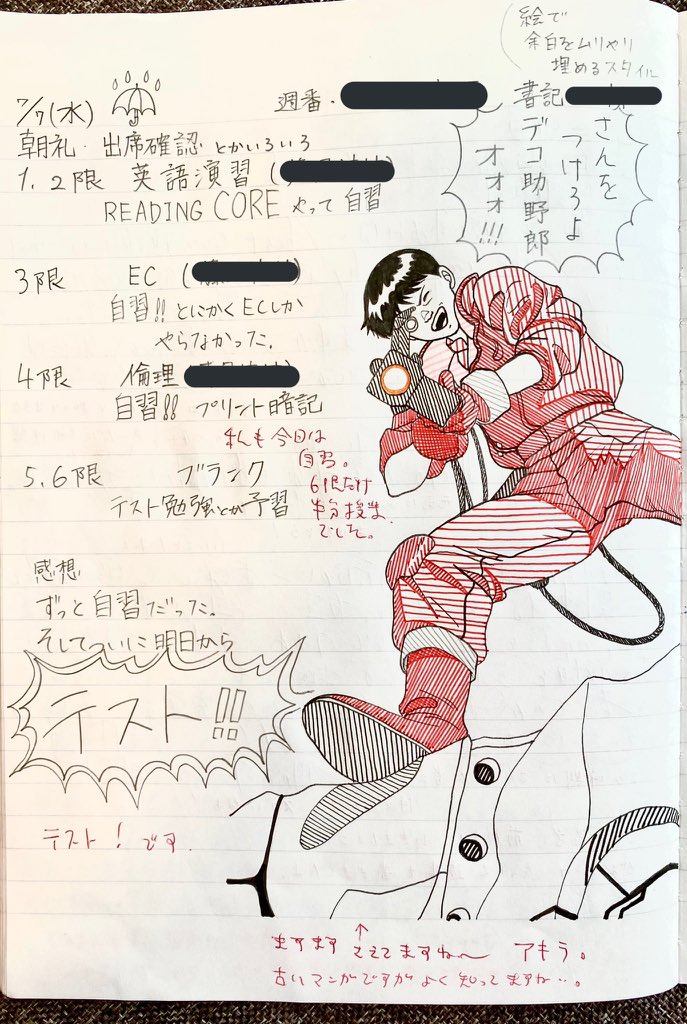 絵で
余白をムリやり
埋めるスタイル
7/7(水)
週番・
書記
朝礼・出席確認とかいろいろ
1,2限 英語演習(
READING CORE やって自習
さんを
つけろよ
デコ助野郎
オオオ!!!
3限 EC (
自習!!とにかくECしか
やらなかった.
4限 倫理
自習!! プリント暗記
私も今日は
自習。
6限だけ
半分授業
でした。
5,6限 ブランク
テスト勉強とか予習
感想
ずっと自習だった.
そしてついに明日から
テスト!!
テスト!です.
ますます さえてますね〜 アキラ。
古いマンガですがよく知ってますね…。